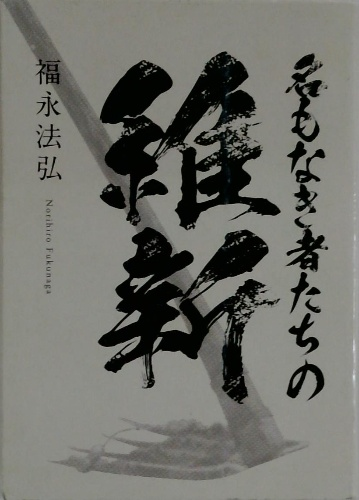 名もなき者たちの
維新
福永法弘
Norihiro Fukunaga